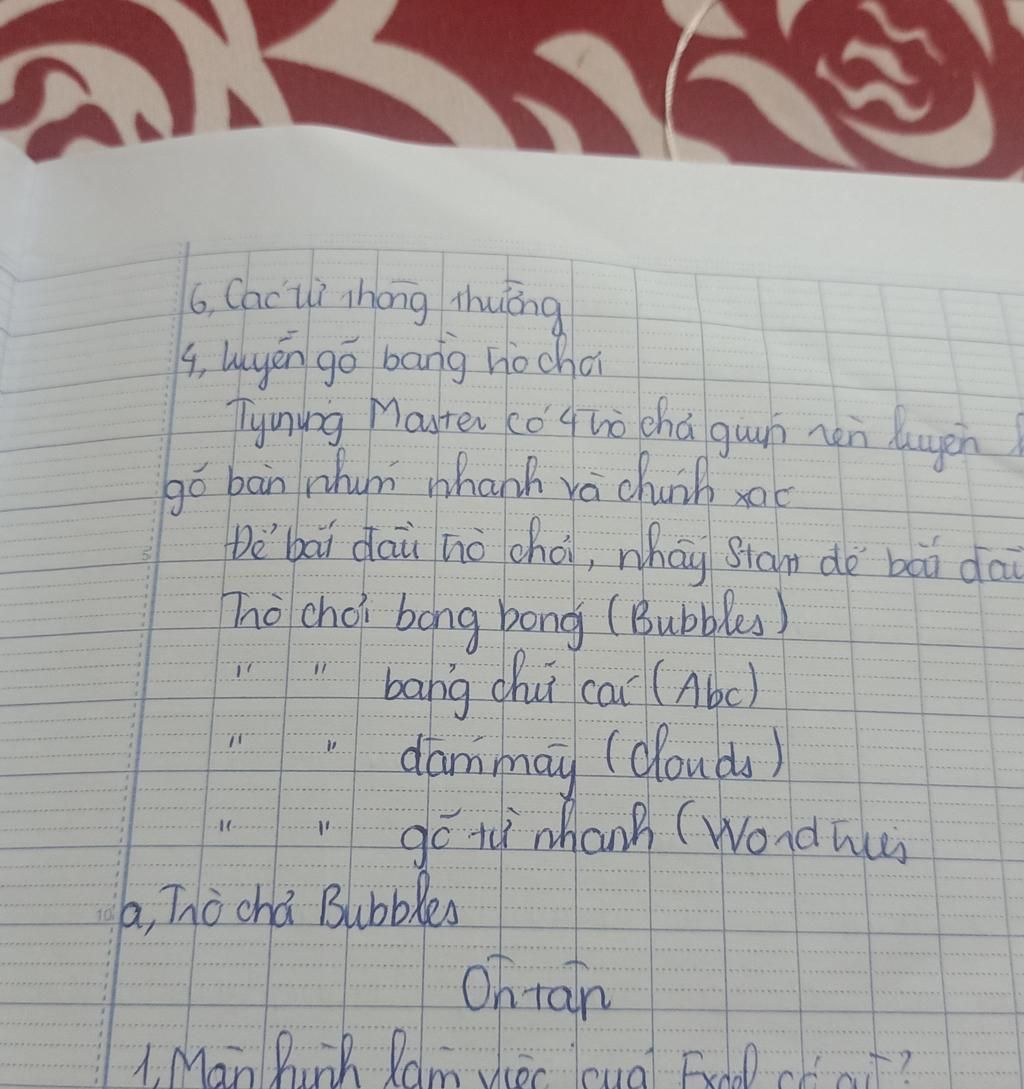 6, Các từ thông thường
4, luyện gõ bằng trò chơi
Typing Master có 4 trò chơi giúp rèn luyện
gõ bàn phím nhanh và chính xác
Để bắt đầu trò chơi, nháy Start để bắt đầu
Trò chơi bong bóng (Bubbles)
" " bảng chữ cái (Abc)
" " đám mây (Clouds)
" " gõ từ nhanh (Wordtris
a, Trò chơi Bubbles
Ôn tập
1, Màn hình làm việc của Excel có gì?